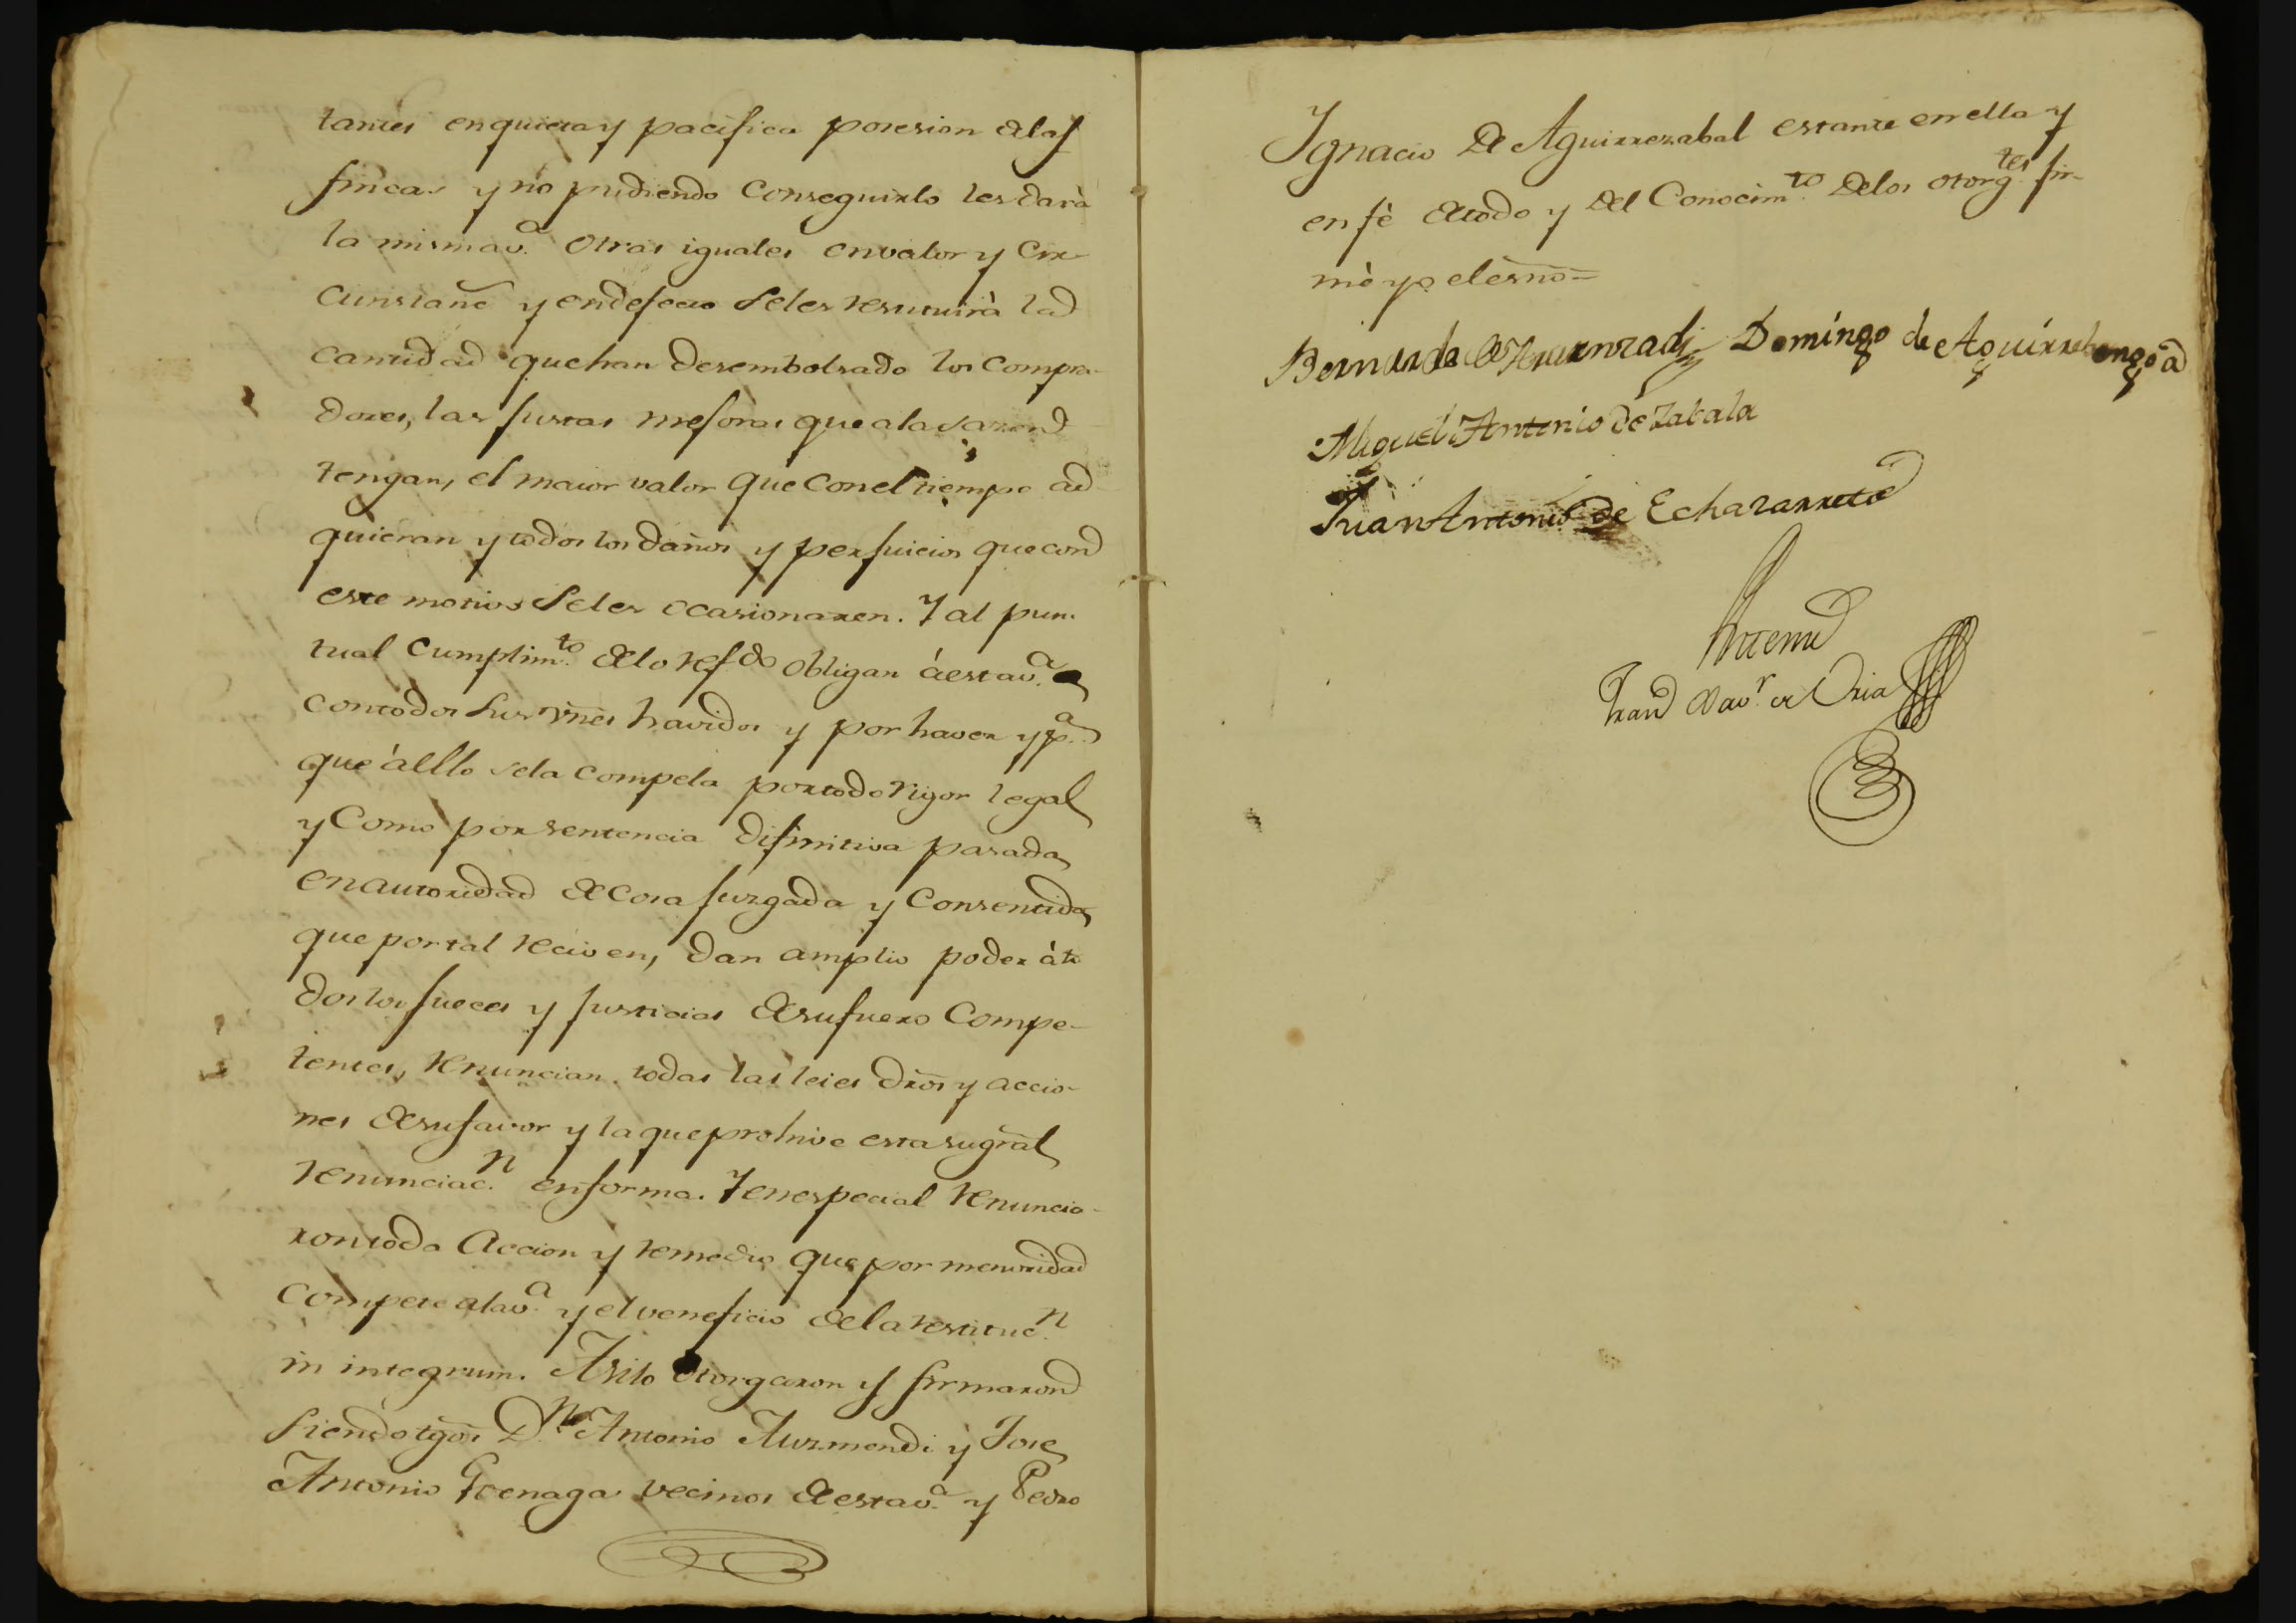 tantes en quieta y pacifica posesion de las
fincas y no pudiendo conseguirlo les dará
la misma v.ª otras iguales en valor y cir-
cunstanc y en defecto se les restituirá la
cantidad que han desembolsado los compra-
dores, las justas mejoras que a la sazon
tengan, el maior valor que con el tiempo ad-
quieran y todos los daños y perjuicios que con
este motivo se les ocasionaren. Y al pun-
tual cumplim.to de lo refdo obligan á esta v.ª
con todos sus vnēs havidos y por haver y p.ª
que á ello se la compela por todo rigor legal
y como por sentencia difinitiva pasada
en autoridad de cosa juzgada y consentida
que por tal reciven, dan amplio poder á to
dos los jueces y justicias de su fuero compe-
tentes, renuncian todas las leies dros y accio-
nes de su favor y la que prohive esta su gral
renunciac.n en forma. Y en especial renuncia-
ron toda accion y remedio que por menoridad
compete a la v.ª y el veneficio de la restituc.n
in integrum. Asi lo otorgaron y firmaron
siendo tgos D.n Antonio Auzmendi y Jose
Antonio Goenaga vecinos de esta v.ª y Pedro
Ignacio de Aguirrezabal estante en ella y
en fé de todo y del conocim.to de los otorg.tes fir-
mè yo el esno=
Domingo de Aguirrebengoa
Miguel Antonio de Zabala
Juan Antonio de Echazarreta
Ante mi
Fran Xav.r de Oria